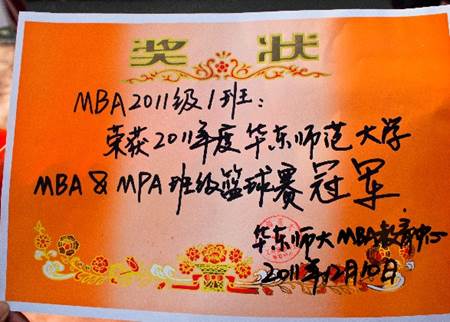 奖状
MBA2011级1班：
荣获2011年度华东师范大学
MBA&MPA班级篮球赛冠军
华东师大MBA教育中心
2011年12月10日